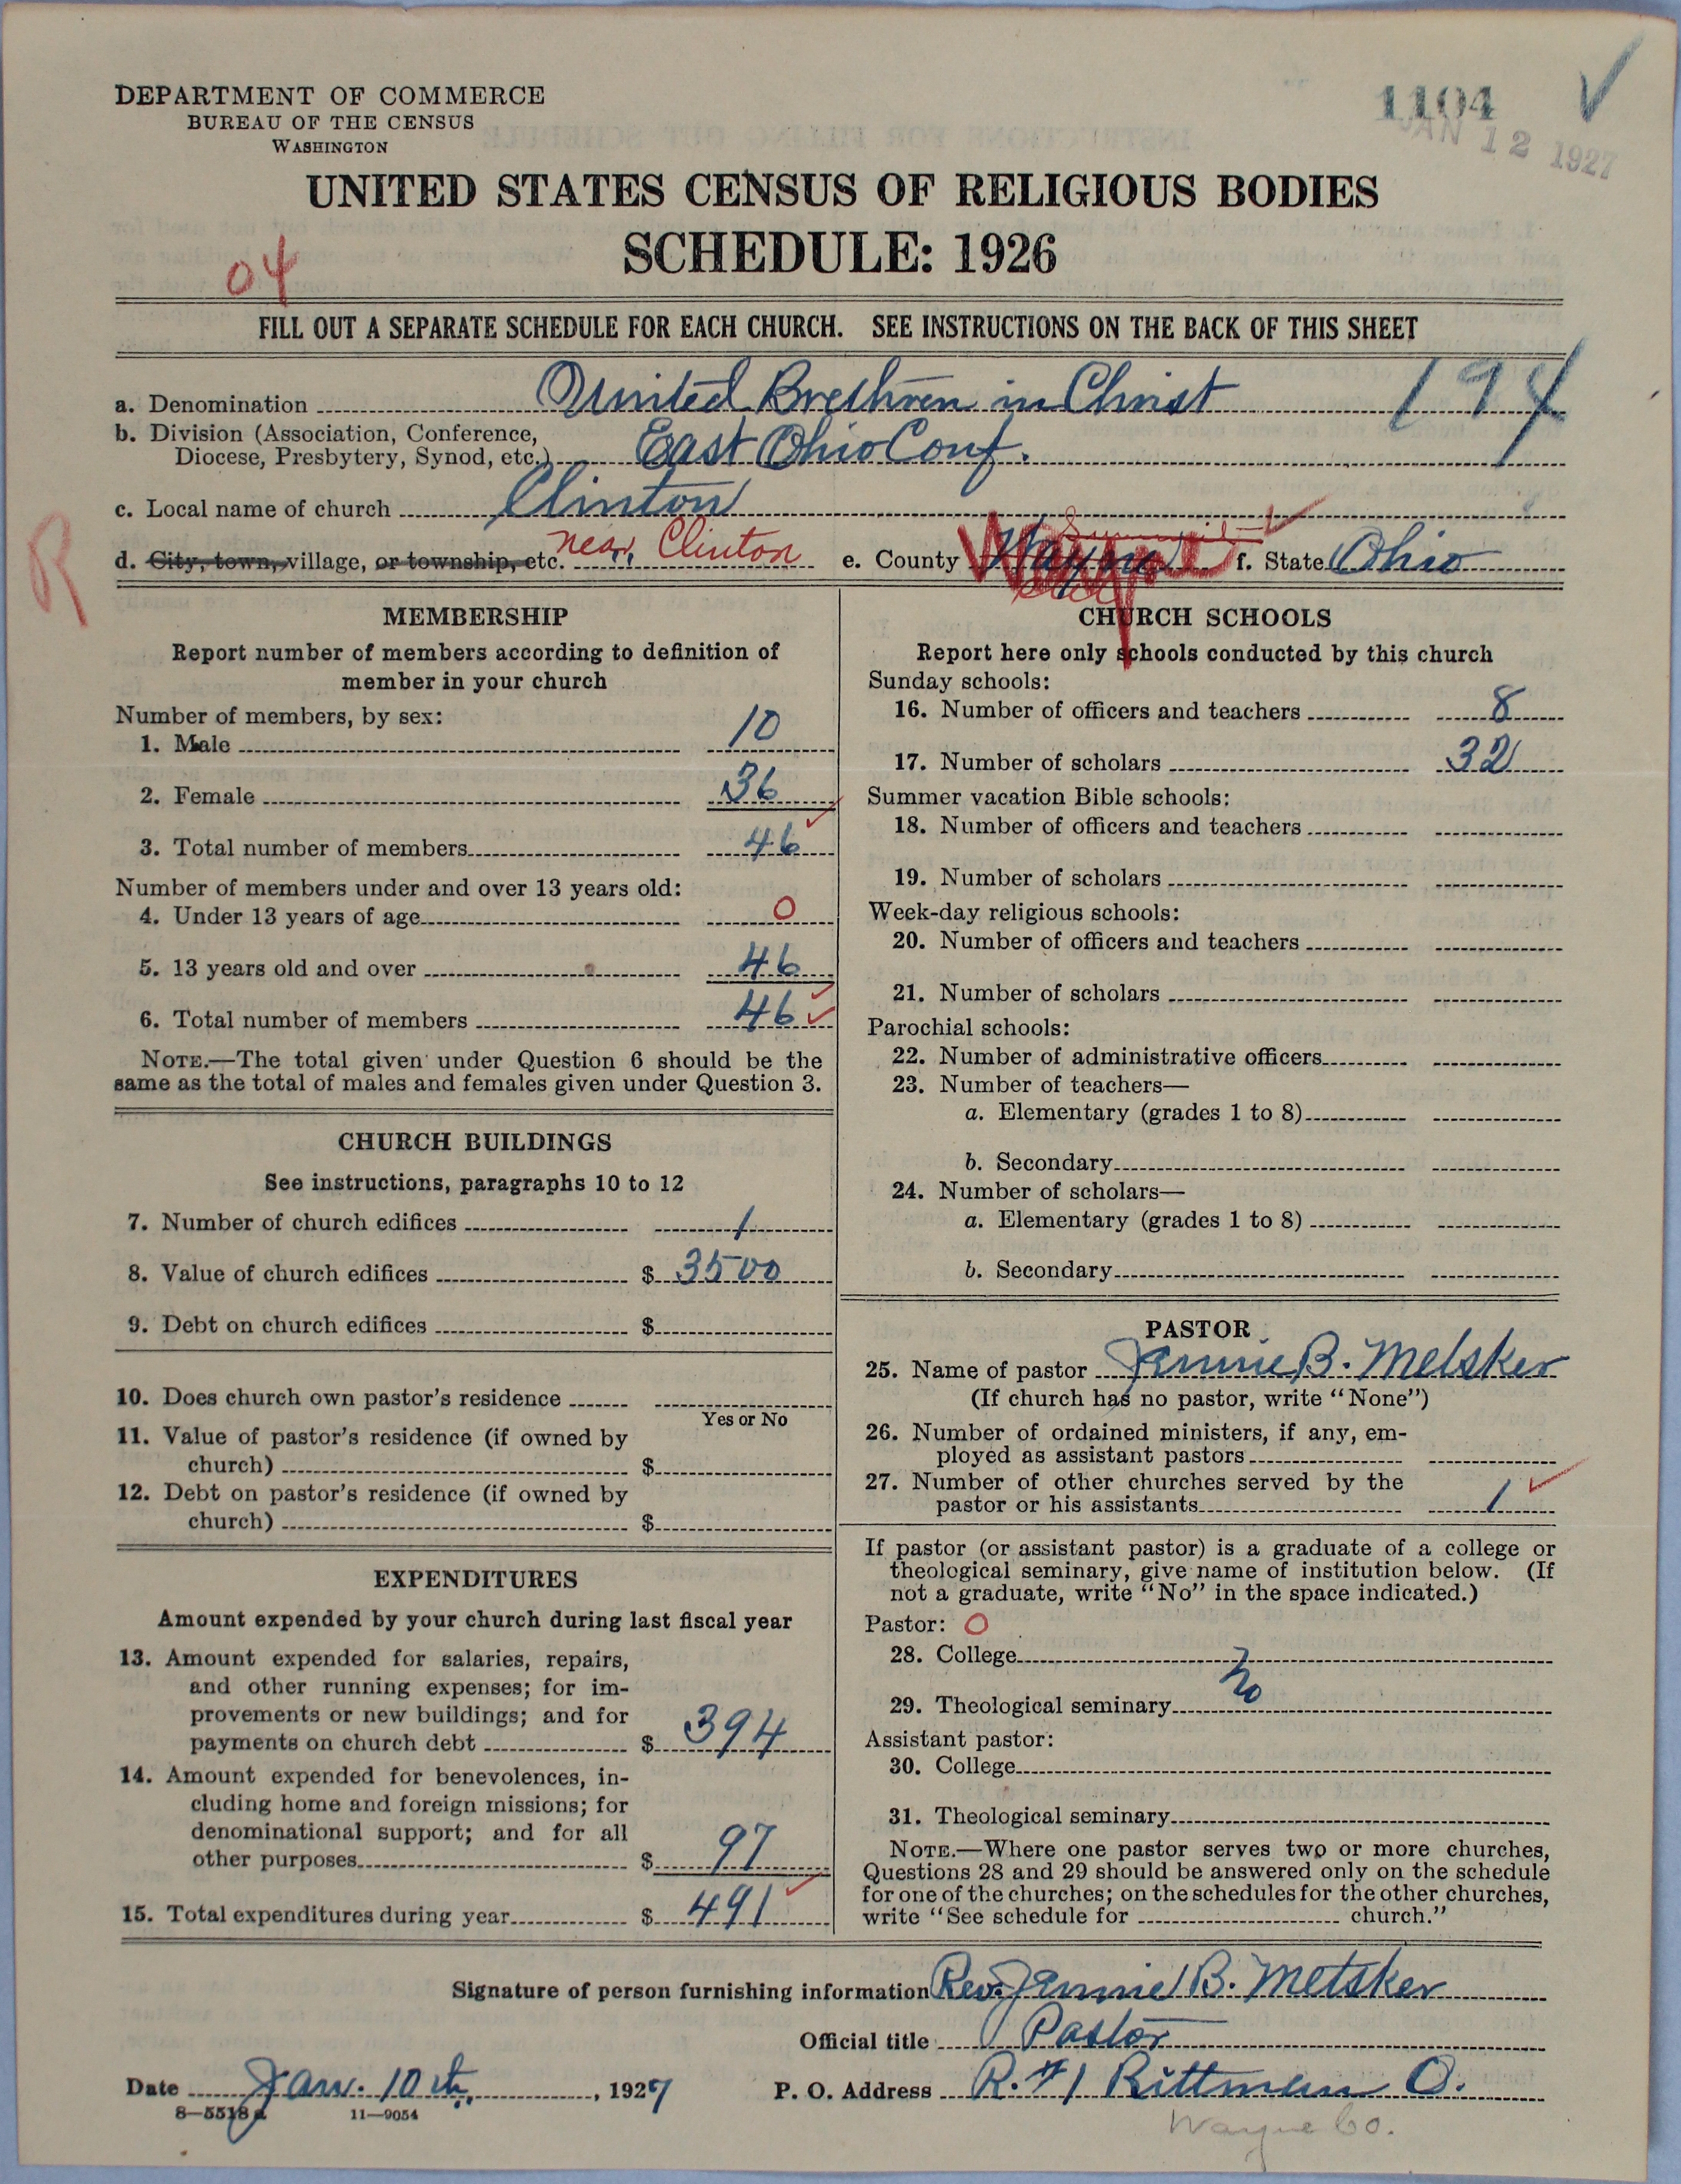 DEPARTMENT OF COMMERCE
BUREAU OF THE CENSUS
WASHINGTON
1104
JAN 12 1927
UNITED STATES CENSUS OF RELIGIOUS BODIES
SCHEDULE: 1926
04
FILL OUT A SEPARATE SCHEDULE FOR EACH CHURCH. SEE INSTRUCTIONS ON THE BACK OF THIS SHEET
a. Denomination United Brethren in Christ 194
b. Division (Association, Conference,
Diocese, Presbytery, Synod, etc.) East Ohio Conf.
c. Local name of church Clinton
R
d. City, town, village, or township, etc. near Clinton e. County Wayne Summit f. State Ohio
MEMBERSHIP
Report number of members according to definition of
member in your church
Number of members, by sex:
1. Male 10
2. Female 36
3. Total number of members 46
Number of members under and over 13 years old:
4. Under 13 years of age 0
5. 13 years old and over 46
6. Total number of members 46
NOTE.—The total given under Question 6 should be the
same as the total of males and females given under Question 3.
CHURCH BUILDINGS
See instructions, paragraphs 10 to 12
7. Number of church edifices 1
8. Value of church edifices $ 3500
9. Debt on church edifices $
10. Does church own pastor's residence
Yes or No
11. Value of pastor's residence (if owned by
church) $
12. Debt on pastor's residence (if owned by
church) $
EXPENDITURES
Amount expended by your church during last fiscal year
13. Amount expended for salaries, repairs,
and other running expenses; for im-
provements or new buildings; and for
payments on church debt $ 394
14. Amount expended for benevolences, in-
cluding home and foreign missions; for
denominational support; and for all
other purposes $ 97
15. Total expenditures during year $ 491
CHURCH SCHOOLS
Report here only schools conducted by this church
Sunday schools:
16. Number of officers and teachers 8
17. Number of scholars 32
Summer vacation Bible schools:
18. Number of officers and teachers
19. Number of scholars
Week-day religious schools:
20. Number of officers and teachers
21. Number of scholars
Parochial schools:
22. Number of administrative officers
23. Number of teachers—
a. Elementary (grades 1 to 8)
b. Secondary
24. Number of scholars—
a. Elementary (grades 1 to 8)
b. Secondary
PASTOR
25. Name of pastor Jennie B. Metsker
(If church has no pastor, write "None")
26. Number of ordained ministers, if any, em-
ployed as assistant pastors
27. Number of other churches served by the
pastor or his assistants 1
If pastor (or assistant pastor) is a graduate of a college or
theological seminary, give name of institution below. (If
not a graduate, write "No" in the space indicated.)
Pastor: O
28. College
No
29. Theological seminary
Assistant pastor:
30. College
31. Theological seminary
NOTE.—Where one pastor serves two or more churches,
Questions 28 and 29 should be answered only on the schedule
for one of the churches; on the schedules for the other churches,
write "See schedule for church."
Signature of person furnishing information Rev. Jennie B. Metsker
Official title Pastor
Date Jan. 10th, 1927 P. O. Address R. #1 Rittman O.
8—5518 a 11—9054
Wayne Co.